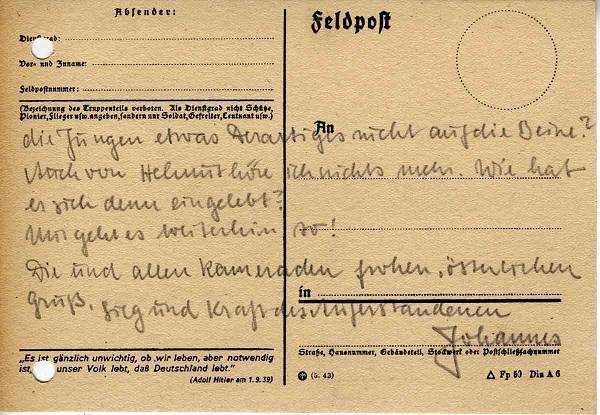 Absender:
Dienstgrad:
Vor- und Zuname:
Feldpostnummer:
(Bezeichnung des Truppenteils verboten. Als Dienstgrad nicht Schütze,
Pionier, Flieger usw. angeben, sondern nur Soldat, Gefreiter, Leutnant usw.)
Feldpost
An
die Jungen etwas Derartiges nicht auf die Beine?
Auch von Helmut höre ich nichts mehr. Wie hat
er sich denn eingelebt?
Mir geht es weiterhin so!
Die und allen Kameraden frohen, österlichen
Gruß. Sieg und Kraft des Auferstandenen
Johannes
in
Straße, Hausnummer, Gebäudeteil, Stockwerk oder Postschließfachnummer
„Es ist gänzlich unwichtig, ob wir leben, aber notwendig
ist, unser Volk lebt, daß Deutschland lebt.“
(Adolf Hitler am 1.9.39)
(5. 43)
△ Fp 60 Din A 6